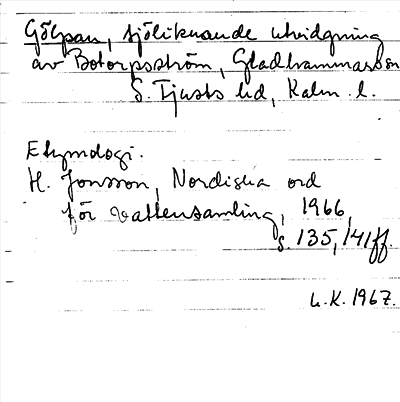 Gölpan, sjöliknande utvidgning
av Botorpsström, Gladhammars sn
S. Tjusts hd, Kalm. l.
Etymologi.
H. Jonsson, Nordiska ord
för vattensamling, 1966,
s. 135, 141ff.
L.K. 1967.